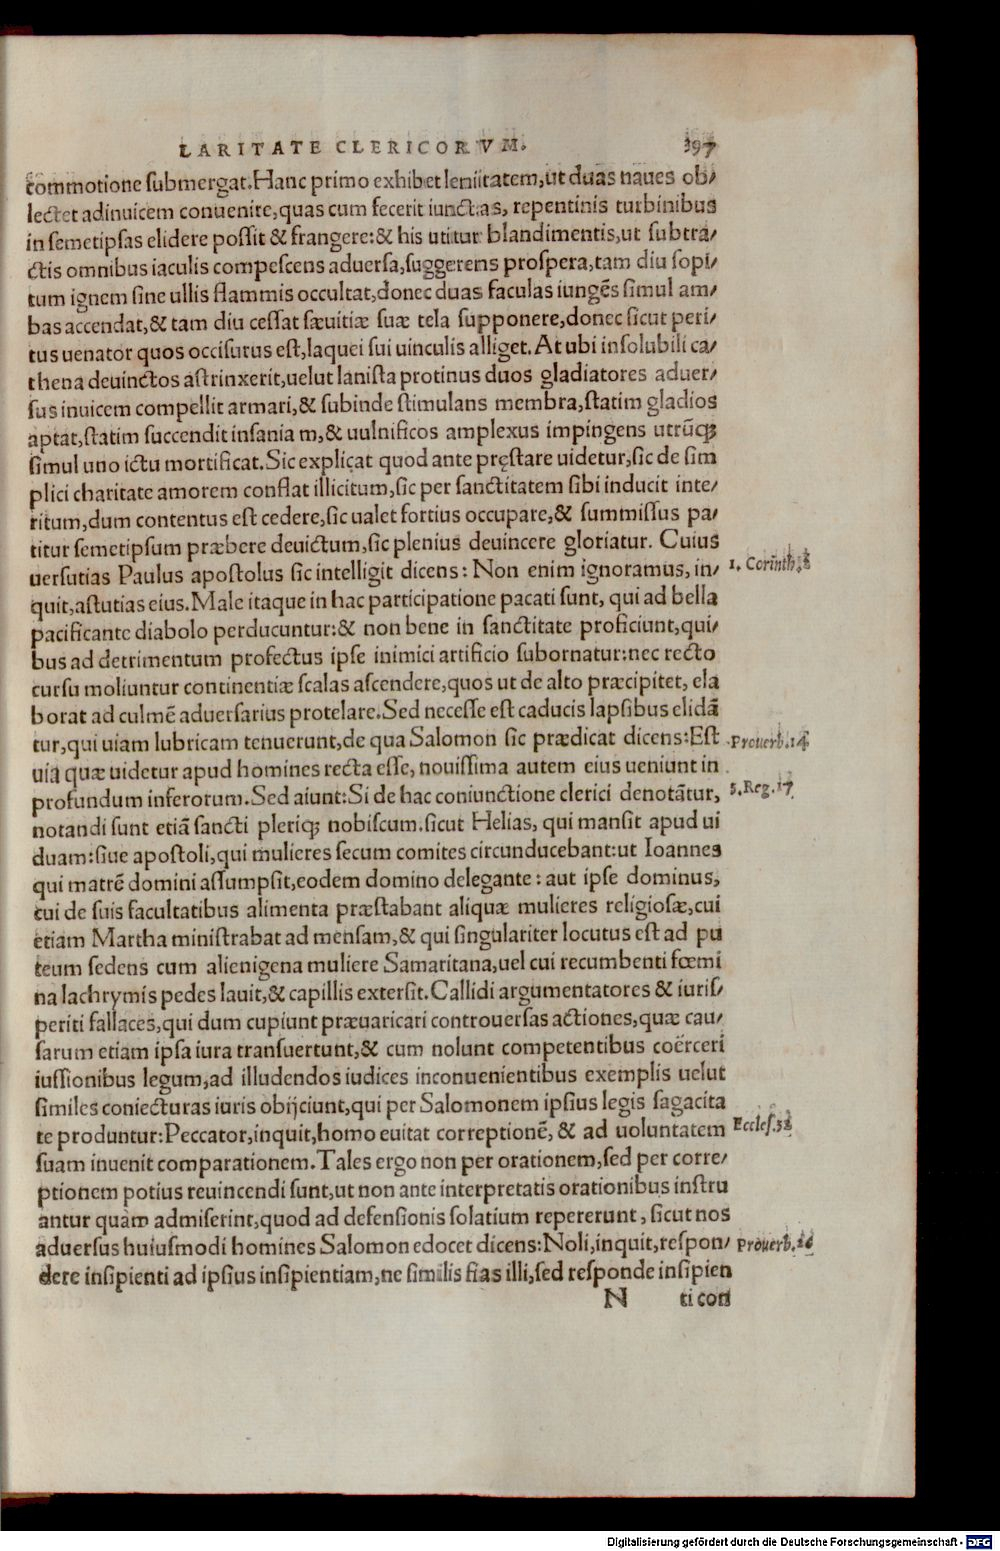 LARITATE CLERICORVM. 397
commotione submergat. Hanc primo exhibet leniitatem, ut duas naues ob/
lectet adinuicem conuenire, quas cum fecerit iunctas, repentinis turbinibus
in semetipsas elidere possit & frangere: & his utitur blandimentis, ut subtra/
ctis omnibus iaculis compescens aduersa, suggerens prospera, tam diu sopi/
tum ignem sine ullis flammis occultat, donec duas faculas iungẽs simul am/
bas accendat, & tam diu cessat sæuitiæ suæ tela supponere, donec sicut peri/
tus uenator quos occisurus est, laquei sui uinculis alliget. At ubi insolubili ca/
thena deuinctos astrinxerit, uelut lanista protinus duos gladiatores aduer/
sus inuicem compellit armari, & subinde stimulans membra, statim gladios
aptat, statim succendit insania m, & uulnificos amplexus impingens utrũq;
simul uno ictu mortificat. Sic explicat quod ante pręstare uidetur, sic de sim
plici charitate amorem conflat illicitum, sic per sanctitatem sibi inducit inte/
ritum, dum contentus est cedere, sic ualet fortius occupare, & summissus pa/
titur semetipsum præbere deuictum, sic plenius deuincere gloriatur. Cuius
uersutias Paulus apostolus sic intelligit dicens: Non enim ignoramus, in/ 1. Corinth.
quit, astutias eius. Male itaque in hac participatione pacati sunt, qui ad bella
pacificante diabolo perducuntur: & non bene in sanctitate proficiunt, qui/
bus ad detrimentum profectus ipse inimici artificio subornatur: nec recto
cursu moliuntur continentiæ scalas ascendere, quos ut de alto præcipitet, ela
borat ad culmẽ aduersarius protelare. Sed necesse est caducis lapsibus elidã
tur, qui uiam lubricam tenuerunt, de qua Salomon sic prædicat dicens: Est Prouerb. 14.
uia quæ uidetur apud homines recta esse, nouissima autem eius ueniunt in
profundum inferorum. Sed aiunt: Si de hac coniunctione clerici denotãtur, 3. Reg. 17
notandi sunt etiã sancti pleriq; nobiscum. sicut Helias, qui mansit apud ui
duam: siue apostoli, qui mulieres secum comites circunducebant: ut Ioannes
qui matrẽ domini assumpsit, eodem domino delegante: aut ipse dominus,
cui de suis facultatibus alimenta præstabant aliquæ mulieres religiosæ, cui
etiam Martha ministrabat ad mensam, & qui singulariter locutus est ad pu
teum sedens cum alienigena muliere Samaritana, uel cui recumbenti fœmi
na lachrymis pedes lauit, & capillis extersit. Callidi argumentatores & iuris/
periti fallaces, qui dum cupiunt præuaricari controuersas actiones, quæ cau/
sarum etiam ipsa iura transuertunt, & cum nolunt competentibus coërceri
iussionibus legum, ad illudendos iudices inconuenientibus exemplis uelut
similes coniecturas iuris obijciunt, qui per Salomonem ipsius legis sagacita
te produntur: Peccator, inquit, homo euitat correptionẽ, & ad uoluntatem Eccles. 32
suam inuenit comparationem. Tales ergo non per orationem, sed per corre/
ptionem potius reuincendi sunt, ut non ante interpretatis orationibus instru
antur quàm admiserint, quod ad defensionis solatium repererunt, sicut nos
aduersus huiusmodi homines Salomon edocet dicens: Noli, inquit, respon/ Prouerb. 26
dere insipienti ad ipsius insipientiam, ne similis fias illi, sed responde insipien
N ti con
Digitalisierung gefördert durch die Deutsche Forschungsgemeinschaft - DFG